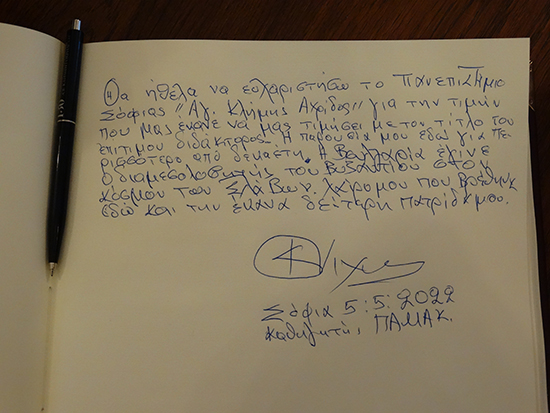 Θα ήθελα να ευχαριστήσω το Πανεπιστήμιο
Σόφιας "Αγ. Κλήμης Αχρίδος" για την τιμήν
που μας έκανε να μας τιμήσει με τον τίτλο του
επίτιμου διδάκτορος. Η παρουσία μου εδώ για πε
ρισσότερο από δεκαετή. Η Βουλγαρία έγινε
ο διαμεσολαβητής του Βυζαντίου στον
κόσμον των Σλάβων. Χαρομαι που βρέθηκα
εδώ και την έκανα δεύτερη πατρίδα μου.
Σόφια 5:5:2022
καθηγητή, ΠΑΜΑΚ.